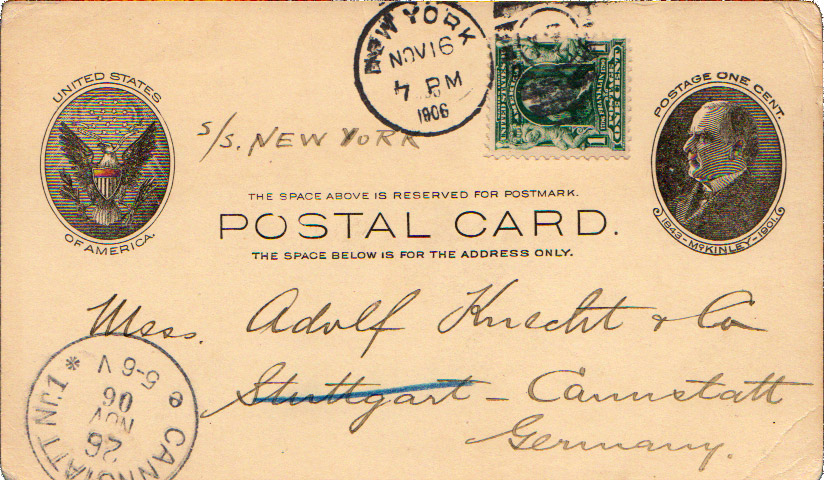 NEW YORK
NOV 16
7 PM
1906
UNITED STATES
OF AMERICA.
POSTAGE ONE CENT.
1843-McKINLEY-1901.
S/S. NEW YORK
THE SPACE ABOVE IS RESERVED FOR POSTMARK.
POSTAL CARD.
THE SPACE BELOW IS FOR THE ADDRESS ONLY.
Mess. Adolf Knecht & Co
Stuttgart - Cannstatt
Germany.
CANNSTATT Nr. 1 *
26
NOV
06
5-6 V